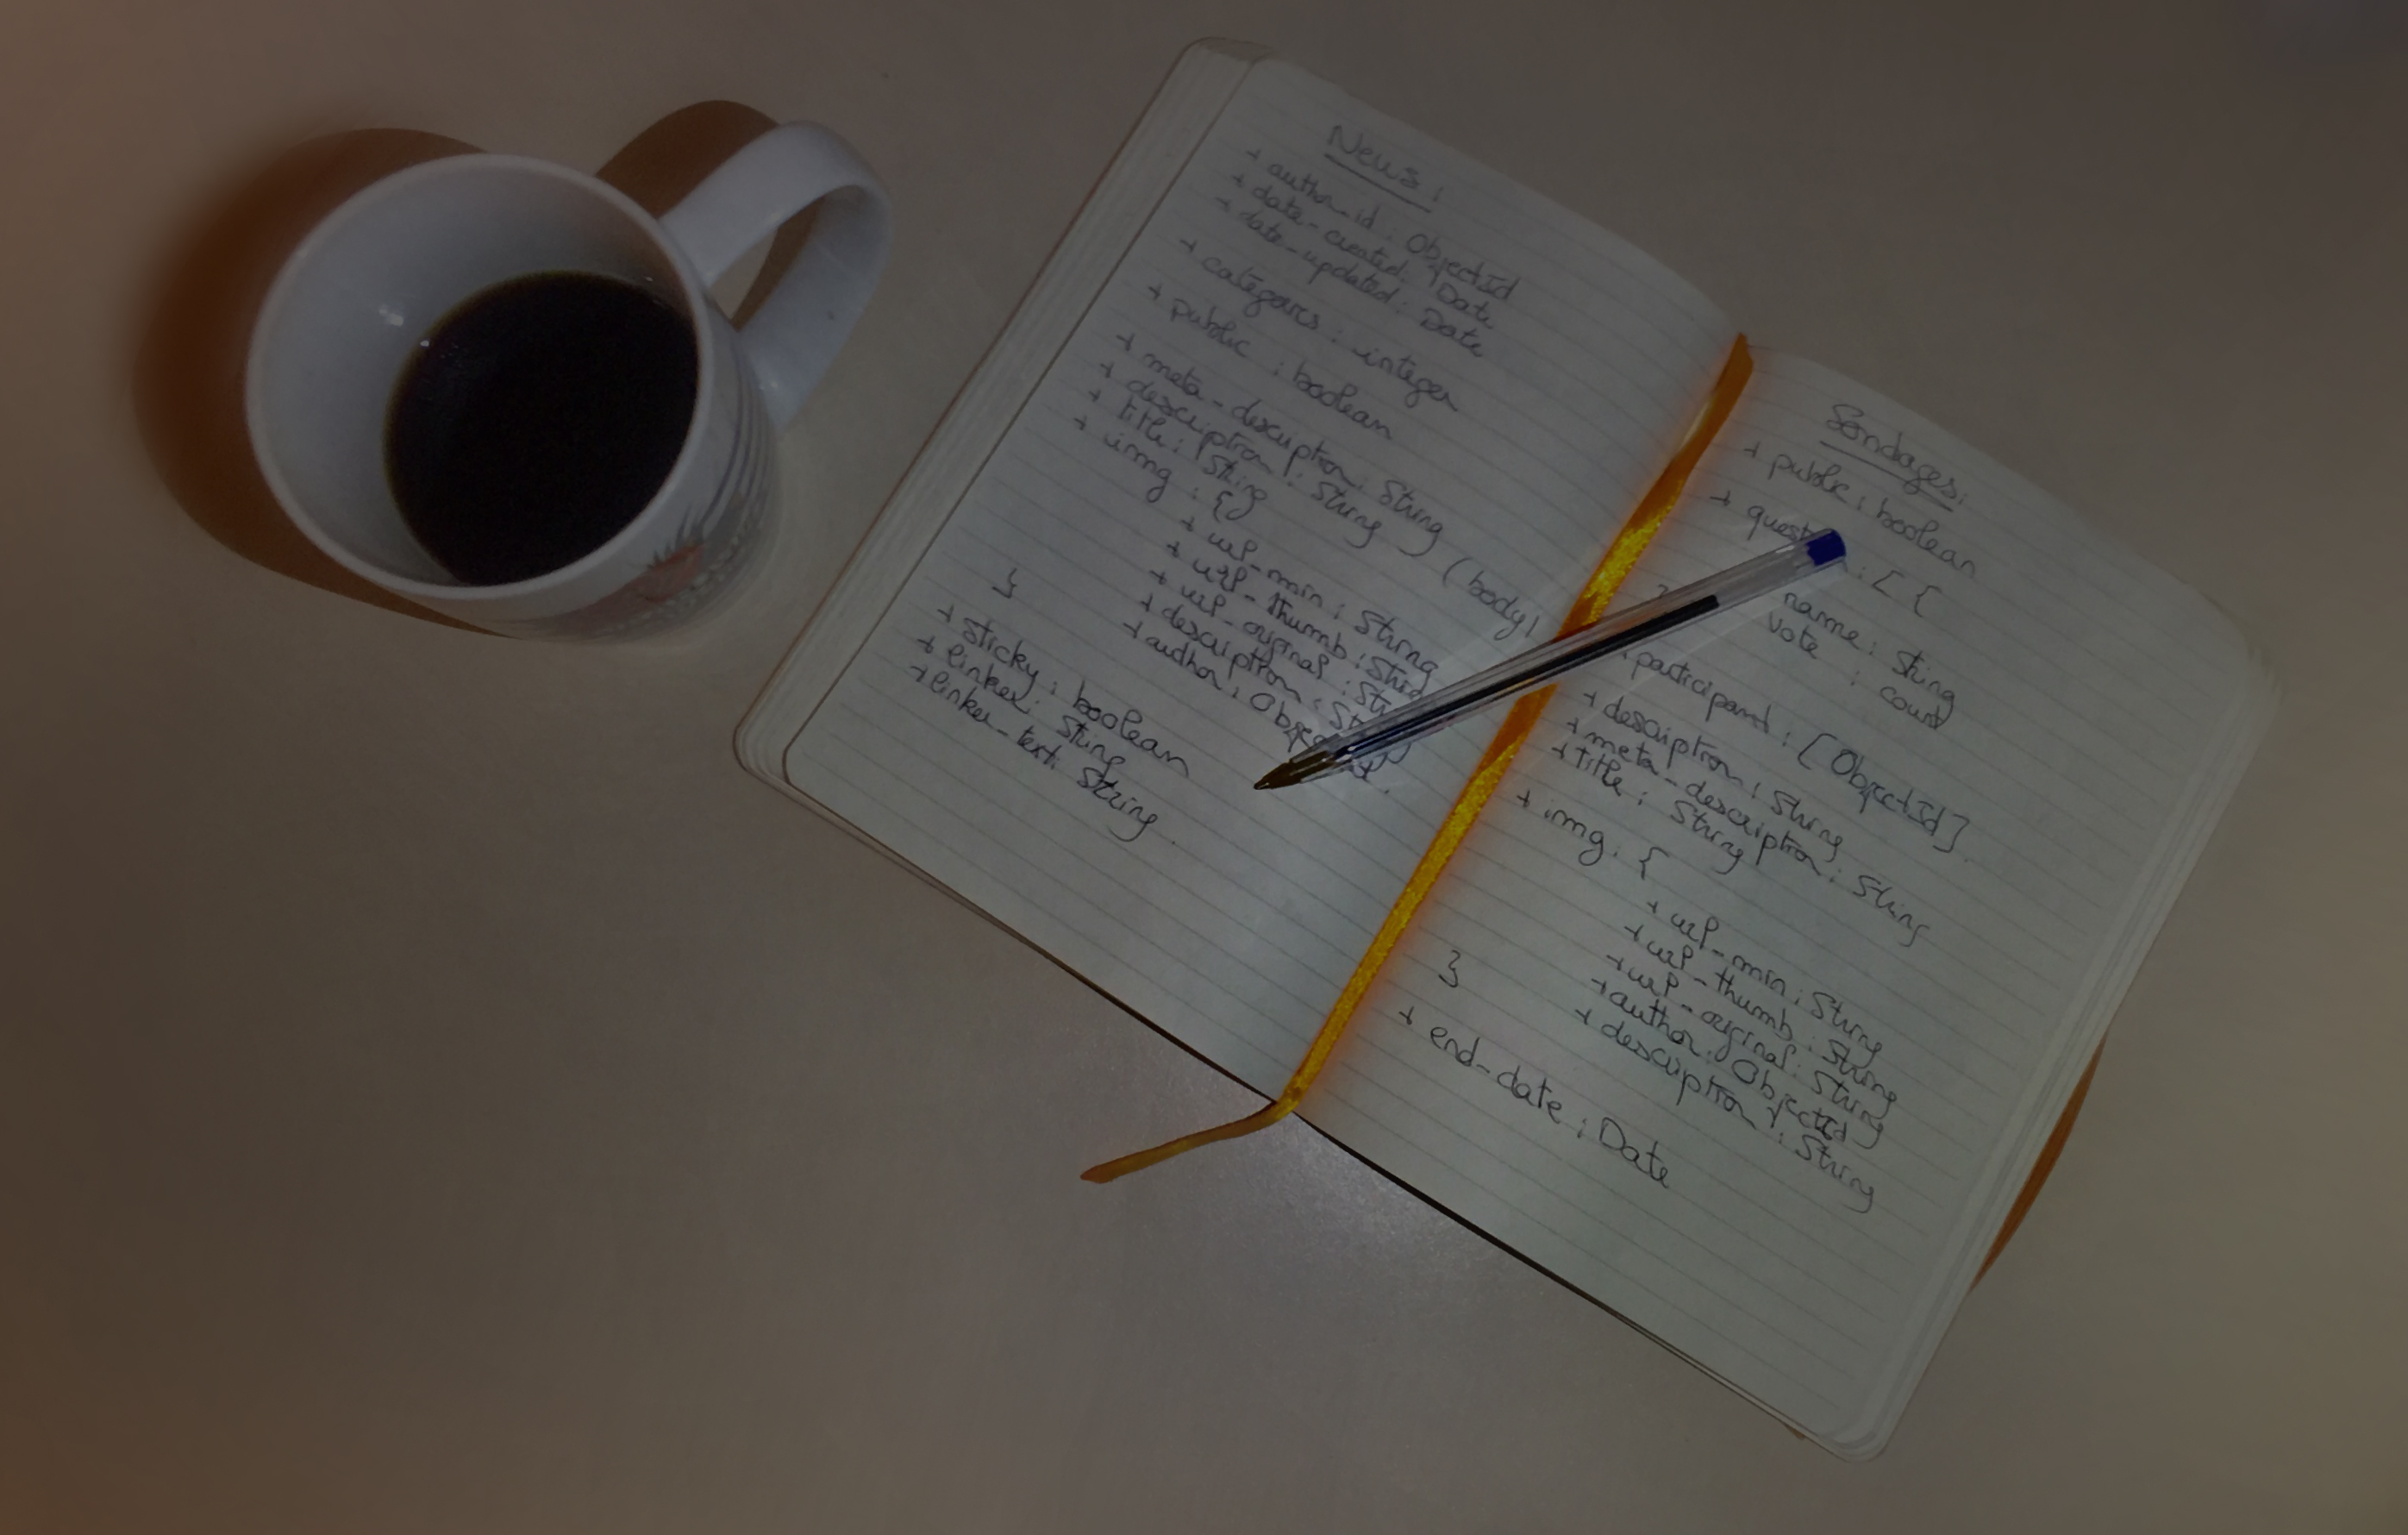 News :
+ author-id : ObjectId
+ date-created : Date
+ date-updated : Date
+ categories : integer
+ public : boolean
+ meta-description : String
+ description : String (body)
+ title : String
+ img : {
+ url-min : String
+ url-thumb : String
+ url-original : String
+ description : String
+ author : ObjectId.
}
+ sticky : boolean
+ linker : String
+ linker-text : String
Sondages :
+ public : boolean
+ : [ {
name : String
vote : count
participant : [ObjectId].
+ description : String
+ meta-description : String
+ title : String
+ img : {
+ url-min : String
+ url-thumb : String
+ url-original : String
+ author : ObjectId
+ description : String
}
+ end-date : Date